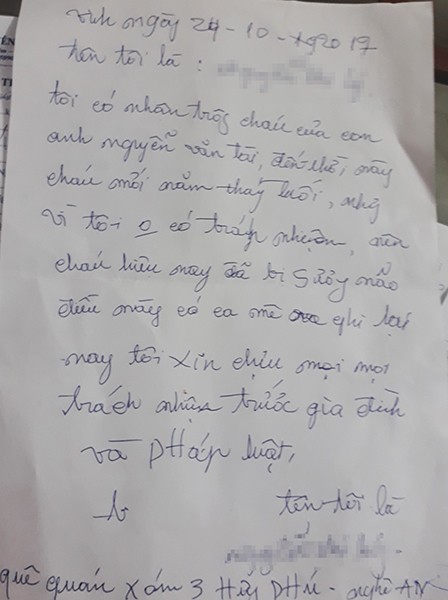 vinh ngày 24-10-2017
tên tôi là :
tôi có nhận trộg cháu của con
anh nguyễn văn tài, đến thời này
cháu mới năm tháy tuổi, nhg
vì tôi o có trách nhiệm, nên
cháu hiêu nay đã bi Sưởy não
điều này có ca mê ghi lại
nay tôi xin chịu mọi mọi
trách nhiệm trước gia đình
và PHáp luật,
tên tôi là
quê quán xóm 3 HƯg PHú - nghệ AN